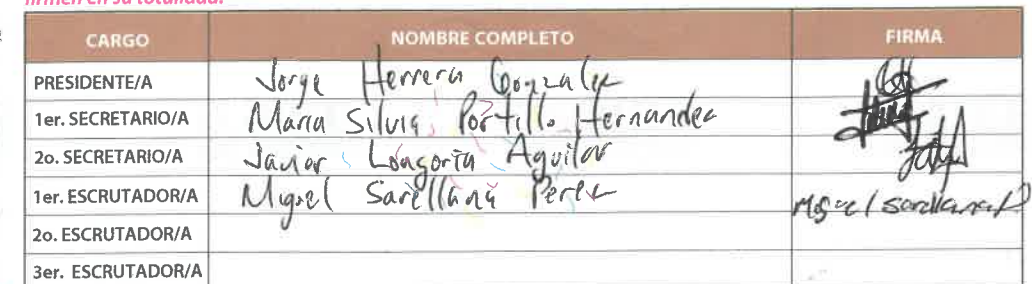 firmen en su totalidad.
CARGO NOMBRE COMPLETO FIRMA
PRESIDENTE/A Jorge Herrera Gonzalez
1er. SECRETARIO/A Maria Silvia Portillo Hernandez
2o. SECRETARIO/A Javier Longoria Aguilar
1er. ESCRUTADOR/A Miguel Sarellana Perez Miguel Sarellana P
2o. ESCRUTADOR/A
3er. ESCRUTADOR/A